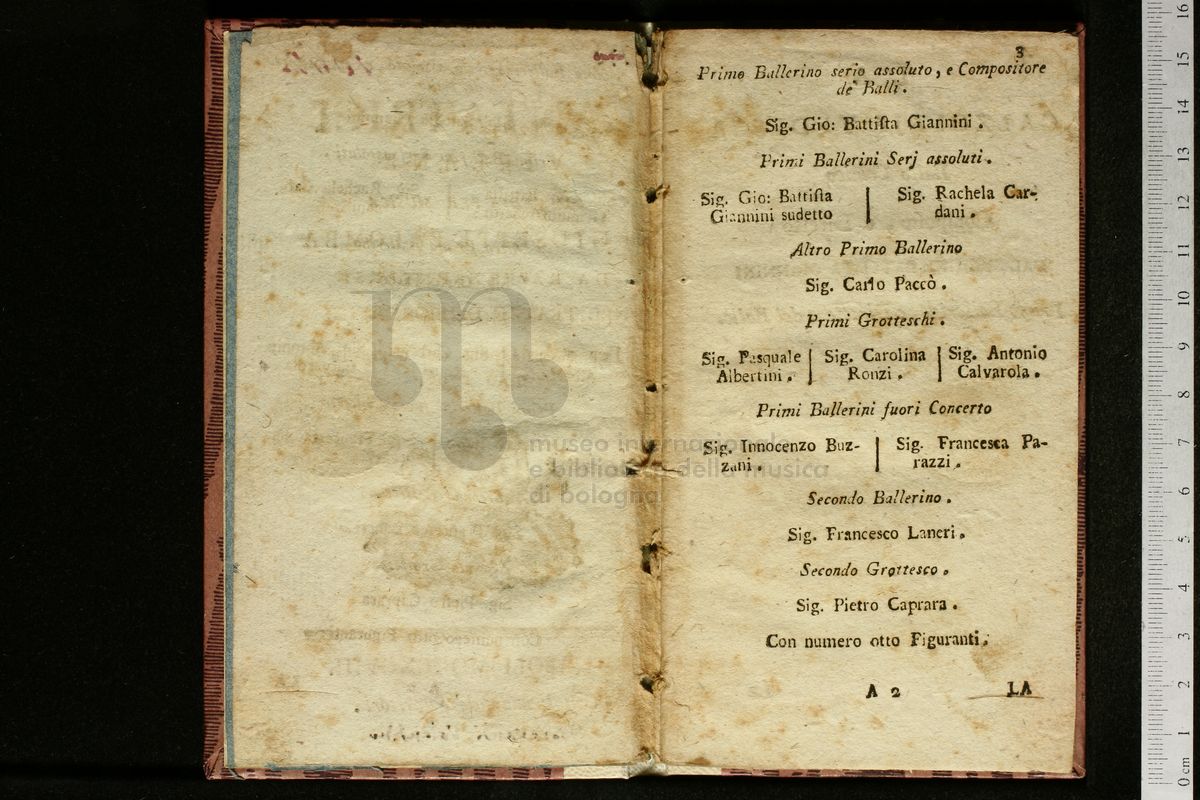 3
Primo Ballerino serio assoluto, e Compositore
de' Balli.
Sig. Gio: Battiſta Giannini.
Primi Ballerini Serj assoluti.
Sig. Gio: Battiſta
Giannini sudetto
Sig. Rachela Car-
dani.
Altro Primo Ballerino
Sig. Carlo Paccò.
Primi Grotteschi.
Sig. Pasquale
Albertini.
Sig. Carolina
Ronzi.
Sig. Antonio
Calvarola.
Primi Ballerini fuori Concerto
Sig. Innocenzo Buz-
zani.
Sig. Francesca Pa-
razzi.
Secondo Ballerino.
Sig. Francesco Laneri.
Secondo Grottesco.
Sig. Pietro Caprara.
Con numero otto Figuranti.
A 2
LA
museo internazionale
e biblioteca della musica
di bologna
0 cm 1 2 3 4 5 6 7 8 9 10 11 12 13 14 15 16